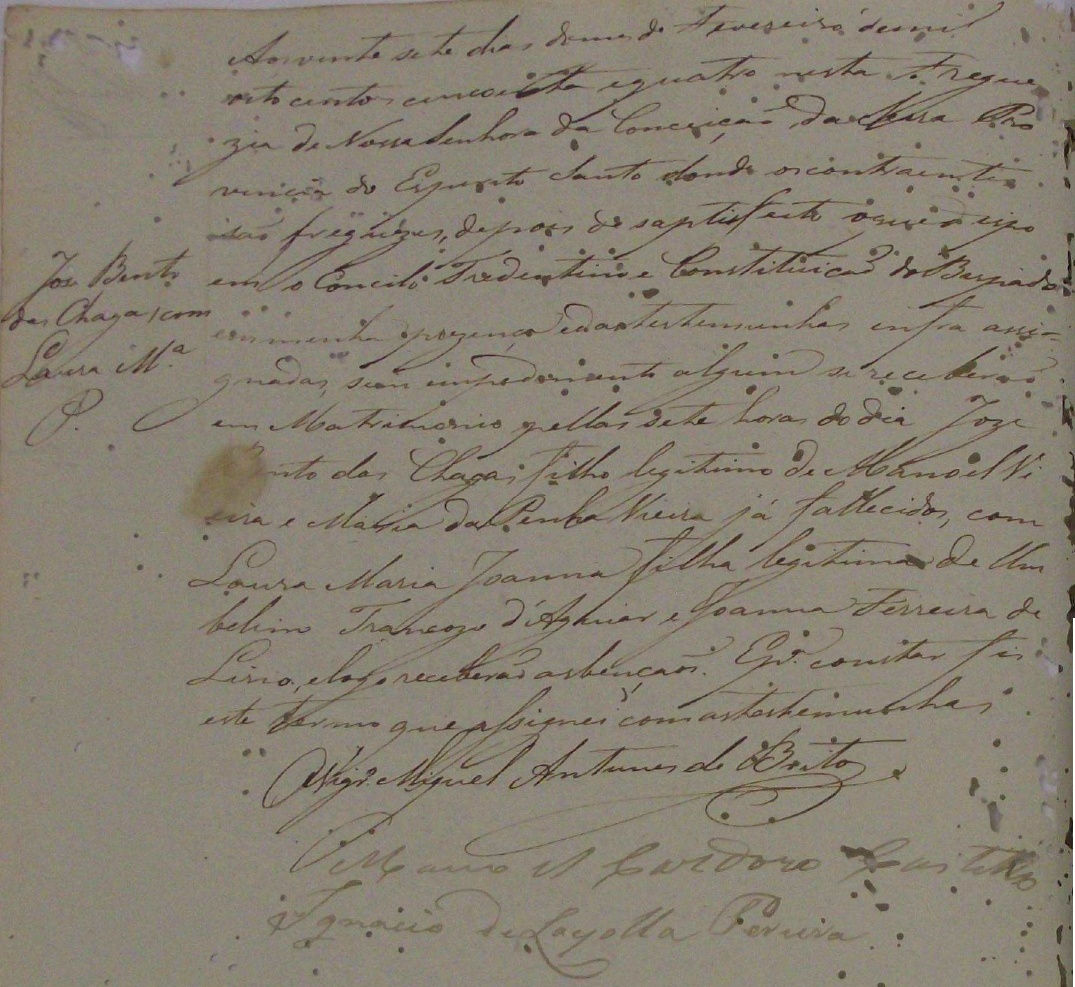 Aos vinte sete dias do mes de Fevereiro de mil
oito centos cincoenta e quatro nesta Fregue
zia de Nossa Senhora da Conceição da Serra Pro
vincia do Espirito Santo donde os contraentes
são freguezes, depois de saptisfeito o que dispo
em o Concilo Tredentino e Constituição do Bispado
em minha prezença e das testemunhas infra assi-
gnadas, sem impedimento algum se receberão
em Matrimonio pellas sete horas do dia Joze
Bento das Chagas filho legitimo de Manoel Vi
eira e Maria da Penha Vieira já fallecidos, com
Laura Maria Joanna filha legitima de Um
belino Trancozo d'Aguiar e Joanna Ferreira de
Lirio, e logo receberão as bençaõs. E pª. constar fis
este termo que assignei com as testemunhas
Vigrº. Miguel Antunes de Brito
Manoel Cardozo
Ignacio de Layolla Pereira
Joze Bento
das Chagas com
Laura Mª
P.